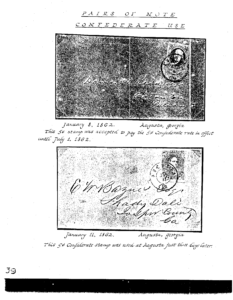 PAIRS OF NOTE
CONFEDERATE USE
January 8, 1862. Augusta, Georgia
This 5¢ stamp was accepted to pay the 5¢ Confederate rate in effect
until July 1, 1862.
C. W. Baynes Esq.
Shady Dale
Jasper County
Ga
January 11, 1862. Augusta, Georgia
This 5¢ Confederate stamp was used at Augusta just three days later.
39